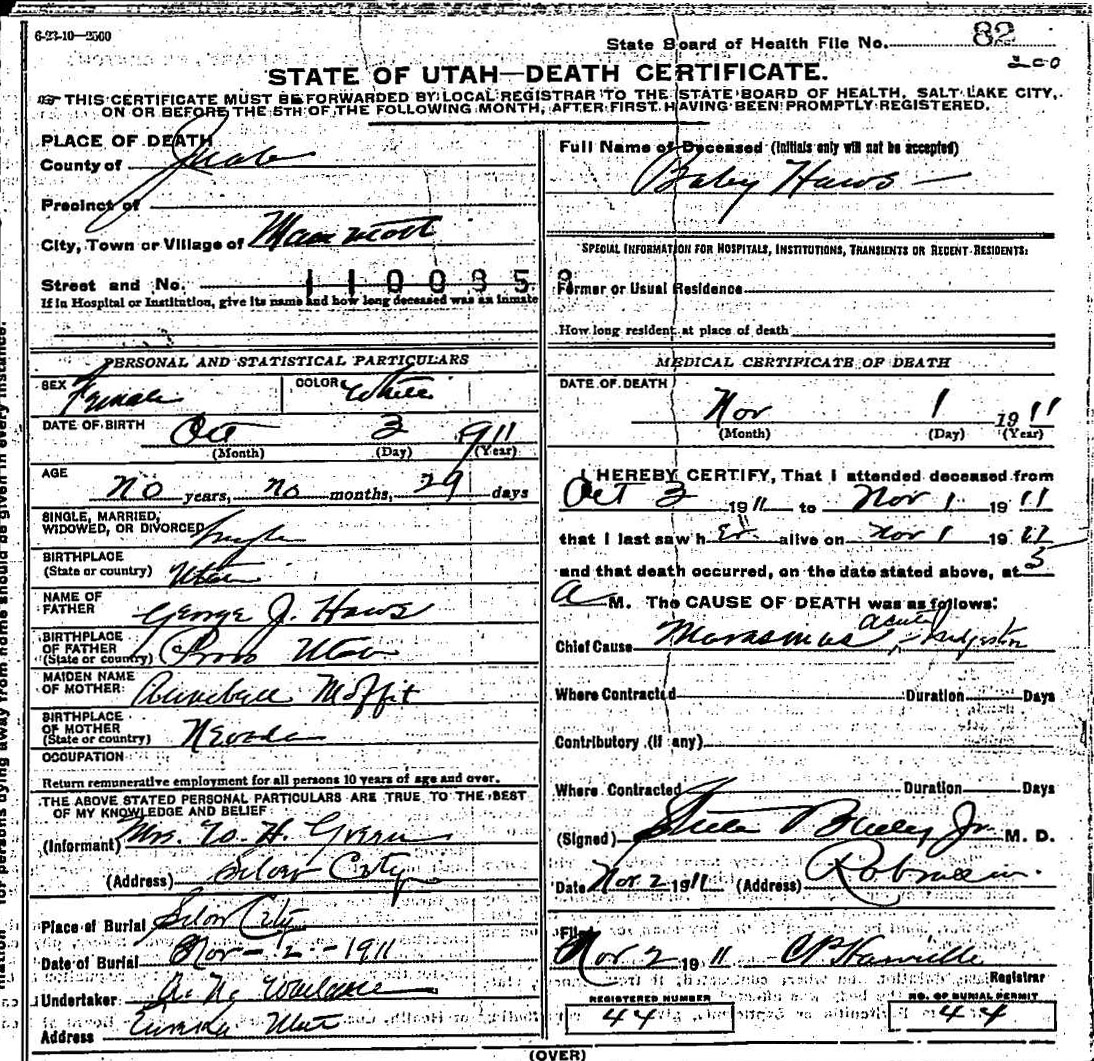 6-23-10—2500
State Board of Health File No. 82
200
STATE OF UTAH—DEATH CERTIFICATE.
THIS CERTIFICATE MUST BE FORWARDED BY LOCAL REGISTRAR TO THE STATE BOARD OF HEALTH, SALT LAKE CITY,
ON OR BEFORE THE 5TH OF THE FOLLOWING MONTH, AFTER FIRST HAVING BEEN PROMPTLY REGISTERED.
PLACE OF DEATH
County of Juab
Precinct of
City, Town or Village of Mammoth
Street and No. 1100358
If in Hospital or Institution, give its name and how long deceased was an inmate
Full Name of Deceased (Initials only will not be accepted)
Baby Haws
SPECIAL INFORMATION FOR HOSPITALS, INSTITUTIONS, TRANSIENTS OR RECENT RESIDENTS:
Former or Usual Residence
How long resident at place of death
PERSONAL AND STATISTICAL PARTICULARS
SEX Female COLOR White
DATE OF BIRTH Oct 3 1911
(Month) (Day) (Year)
AGE
no years, no months, 29 days
SINGLE, MARRIED,
WIDOWED, OR DIVORCED Single
BIRTHPLACE
(State or country) Utah
NAME OF
FATHER George J. Haws
BIRTHPLACE
OF FATHER
(State or country) Provo Utah
MAIDEN NAME
OF MOTHER Annebell Moffit
BIRTHPLACE
OF MOTHER
(State or country) Nevada
OCCUPATION
Return remunerative employment for all persons 10 years of age and over.
THE ABOVE STATED PERSONAL PARTICULARS ARE TRUE TO THE BEST
OF MY KNOWLEDGE AND BELIEF
(Informant) Mrs. W. H. Green
(Address) Silver City
Place of Burial Silver City
Date of Burial Nov - 2 - 1911
Undertaker
Address Eureka Utah
MEDICAL CERTIFICATE OF DEATH
DATE OF DEATH
Nov 1 1911
(Month) (Day) (Year)
I HEREBY CERTIFY, That I attended deceased from
Oct 3 1911 to Nov 1 1911
that I last saw h er alive on Nov 1 1911
and that death occurred, on the date stated above, at 3
A M. The CAUSE OF DEATH was as follows:
Chief Cause Marasmus, acute Indigestion
Where Contracted Duration Days
Contributory (if any)
Where Contracted Duration Days
(Signed) Steele Bailey Jr. M. D.
Date Nov. 2 1911 (Address) Robinson.
Filed
Nov. 2 1911
Registrar
REGISTERED NUMBER
44
NO. OF BURIAL PERMIT
44
(OVER)
for persons dying away from home should be given in every instance.